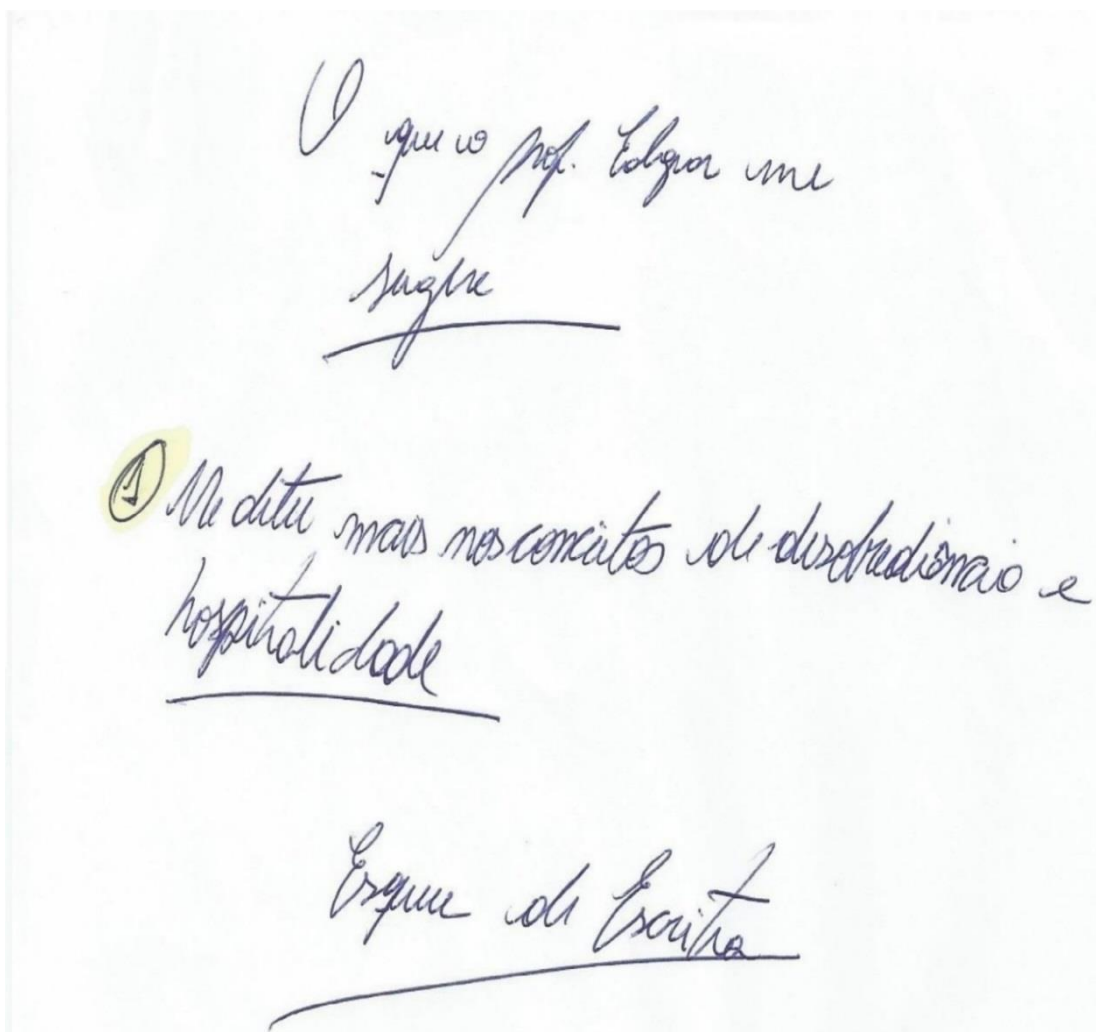 O que o prof. Edgar me
sugere
1 Meditar mais nos conceitos de desobediência e
hospitalidade
de Escrita